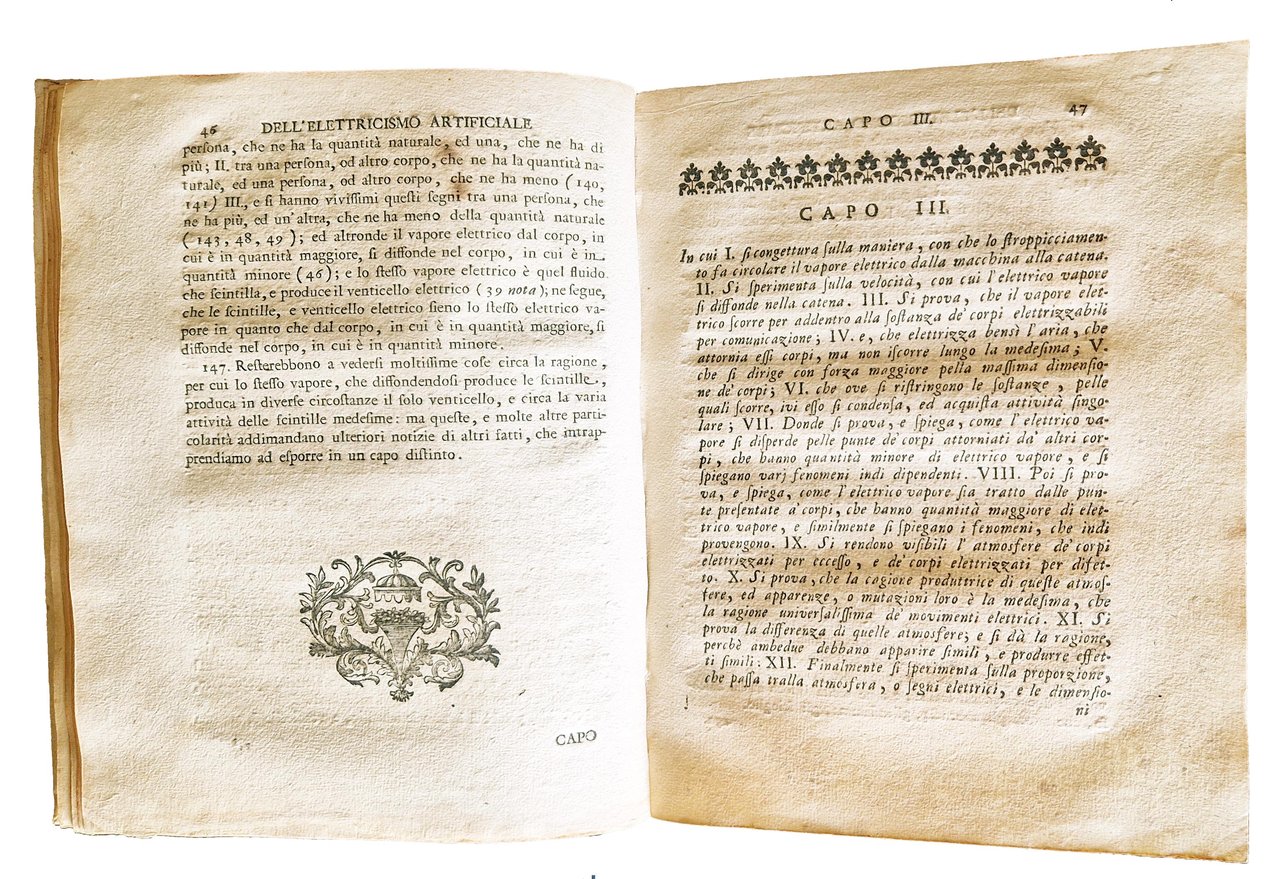 46 DELL'ELETTRICISMO ARTIFICIALE
perſona, che ne ha la quantità naturale, ed una, che ne ha di
più; II. tra una perſona, od altro corpo, che ne ha la quantità na-
turale, ed una perſona, od altro corpo, che ne ha meno (140,
141) III., e ſi hanno viviſſimi queſti ſegni tra una perſona, che
ne ha più, ed un'altra, che ne ha meno della quantità naturale
(143, 48, 49); ed altronde il vapore elettrico dal corpo, in
cui è in quantità maggiore, ſi diffonde nel corpo, in cui è in
quantità minore (46); e lo ſteſſo vapore elettrico è quel fluido
che ſcintilla, e produce il venticello elettrico (39 nota); ne ſegue,
che le ſcintille, e venticello elettrico ſieno lo ſteſſo elettrico va-
pore in quanto che dal corpo, in cui è in quantità maggiore, ſi
diffonde nel corpo, in cui è in quantità minore.
147. Reſterebbono a vederſi moltiſſime coſe circa la ragione,
per cui lo ſteſſo vapore, che diffondendoſi produce le ſcintille,
produca in diverſe circoſtanze il ſolo venticello, e circa la varia
attività delle ſcintille medeſime: ma queſte, e molte altre parti-
colarità addimandano ulteriori notizie di altri fatti, che intrap-
prendiamo ad eſporre in un capo diſtinto.
CAPO
CAPO III. 47
CAPO III.
In cui I. ſi congettura ſulla maniera, con che lo ſtroppicciamen-
to fa circolare il vapore elettrico dalla macchina alla catena.
II. Si ſperimenta ſulla velocità, con cui l'elettrico vapore
ſi diffonde nella catena. III. Si prova, che il vapore elet-
trico ſcorre per addentro alla ſoſtanza de' corpi elettrizzabili
per comunicazione; IV. e, che elettrizza bensì l'aria, che
attornia eſſi corpi, ma non iſcorre lungo la medeſima; V.
che ſi dirige con forza maggiore pella maſſima dimenſio-
ne de' corpi; VI. che ove ſi riſtringono le ſoſtanze, pelle
quali ſcorre, ivi eſſo ſi condenſa, ed acquiſta attività ſingo-
lare; VII. Donde ſi prova, e ſpiega, come l'elettrico va-
pore ſi diſperde pelle punte de' corpi attorniati da' altri cor-
pi, che hanno quantità minore di elettrico vapore, e ſi
ſpiegano varj fenomeni indi dipendenti. VIII. Poi ſi pro-
va, e ſpiega, come l'elettrico vapore ſia tratto dalle pun-
te preſentate a' corpi, che hanno quantità maggiore di elet-
trico vapore, e ſimilmente ſi ſpiegano i fenomeni, che indi
provengono. IX. Si rendono viſibili l'atmosfere de' corpi
elettrizzati per ecceſſo, e de' corpi elettrizzati per difet-
to. X. Si prova, che la cagione produttrice di queſte atmos-
fere, ed apparenze, o mutazioni loro è la medeſima, che
la ragione univerſaliſſima de' movimenti elettrici. XI. Si
prova la differenza di quelle atmosfere; e ſi dà la ragione,
perchè ambedue debbano apparire ſimili, e produrre effet-
ti ſimili: XII. Finalmente ſi ſperimenta ſulla proporzione,
che paſſa tralla atmosfera, o ſegni elettrici, e le dimenſio-
ni